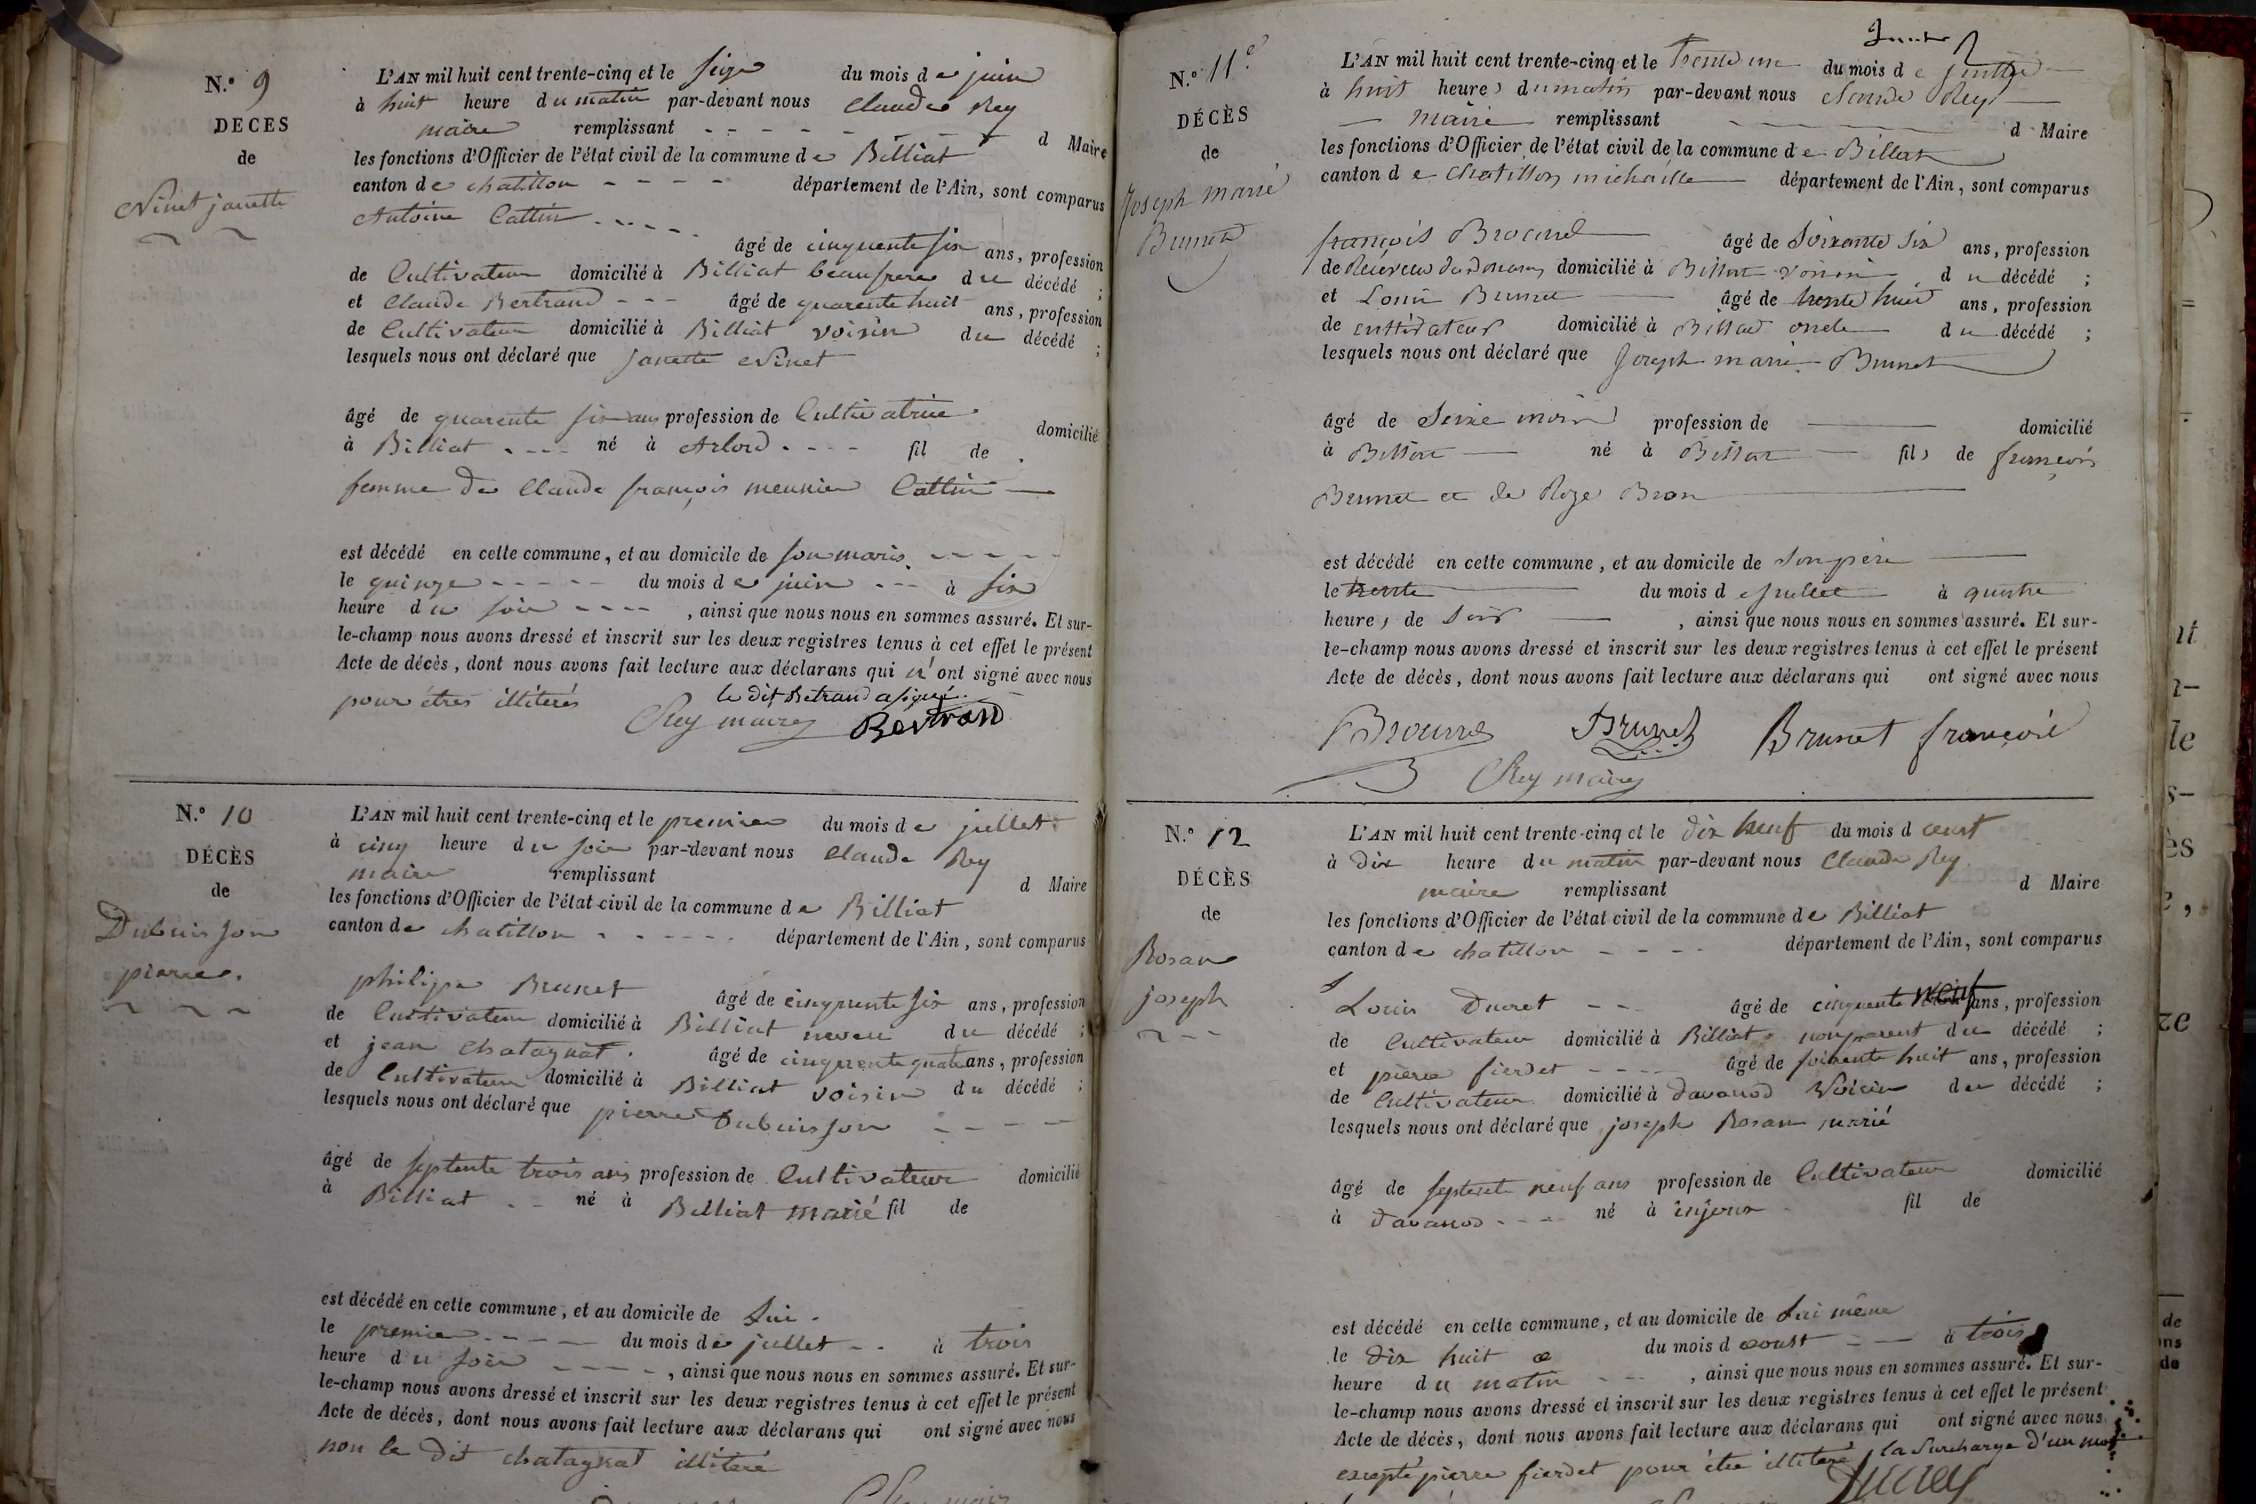 N.º 9
DÉCES
de
Ninet janette
L'AN mil huit cent trente-cinq et le seize du mois de juin
à huit heure du matin par-devant nous Claude Rey
maire remplissant d Maire
les fonctions d'Officier de l'état civil de la commune de Billiat
canton de chatillon - - - - département de l'Ain, sont comparus
Antoine Cattin
âgé de cinquente six ans, profession
de Cultivateur domicilié à Billiat beaufrere du décédé ;
et Claude Bertrand - - - âgé de quarente huit ans, profession
de Cultivateur domicilié à Billiat voisin du décédé ;
lesquels nous ont déclaré que Janette Ninet
âgé de quarente six ans profession de Cultivatrice domicilié
à Billiat - - - né à Arlod - - - - fil de
femme de Claude françois meunier Cattin —
est décédé en cette commune, et au domicile de son maris. - - - - -
le quinze - - - - - du mois de juin - - - à six
heure du soir - - - - , ainsi que nous nous en sommes assuré. Et sur-
le-champ nous avons dressé et inscrit sur les deux registres tenus à cet effet le présent
Acte de décès, dont nous avons fait lecture aux déclarans qui n'ont signé avec nous
pour étres illiterés le dit Betrand a signé.
Rey maire Bertrand
N.º 10
DÉCÈS
de
Dubuisson
pierre.
L'AN mil huit cent trente-cinq et le premier du mois de juillet
à cinq heure du soir par-devant nous Claude Rey
maire remplissant d Maire
les fonctions d'Officier de l'état civil de la commune de Billiat
canton de chatillon - - - - - département de l'Ain, sont comparus
philipe Brunet
âgé de cinquente six ans, profession
de Cultivateur domicilié à Billiat neveu du décédé ;
et jean Chatagnat. âgé de cinquente quatre ans, profession
de Cultivateur domicilié à Billiat voisin du décédé ;
lesquels nous ont déclaré que pierre Dubuisson - - - -
âgé de septente trois ans profession de Cultivateur domicilié
à Billiat - - né à Billiat marié fil de
est décédé en cette commune, et au domicile de Lui -
le premier - - - - du mois de juillet - - à trois
heure du soir - - - - , ainsi que nous nous en sommes assuré. Et sur-
le-champ nous avons dressé et inscrit sur les deux registres tenus à cet effet le présent
Acte de décès, dont nous avons fait lecture aux déclarans qui ont signé avec nous
non le dit chatagnat illiteré
N.º 11e
DÉCÈS
de
Joseph marie
Brunet
L'AN mil huit cent trente-cinq et le trente un du mois de juillet
à huit heures du matin par-devant nous Claude Rey
— maire remplissant d Maire
les fonctions d'Officier de l'état civil de la commune de Billiat
canton de Chatillon michaille département de l'Ain, sont comparus
françois
âgé de Soixante Six ans, profession
de Receveur des douanes domicilié à Billiat voisin du décédé ;
et Louis Brunet âgé de trente huit ans, profession
de cultivateur domicilié à Billiat oncle du décédé ;
lesquels nous ont déclaré que Joseph marie Brunet
âgé de Seize mois profession de domicilié
à Billiat né à Billiat fils de françois
Brunet et de Roze Bron
est décédé en cette commune, et au domicile de son père
le trente du mois de juillet à quatre
heures de Soir , ainsi que nous nous en sommes assuré. Et sur-
le-champ nous avons dressé et inscrit sur les deux registres tenus à cet effet le présent
Acte de décès, dont nous avons fait lecture aux déclarans qui ont signé avec nous
Brunet Brunet françois
Rey maire
N.º 12
DÉCÈS
de
Rosan
joseph
L'AN mil huit cent trente-cinq et le dix neuf du mois d aoust
à dix heure du matin par-devant nous Claude Rey
maire remplissant d Maire
les fonctions d'Officier de l'état civil de la commune de Billiat
canton de chatillon - - - - département de l'Ain, sont comparus
Louis Ducret - - âgé de cinquente neuf ans, profession
de Cultivateur domicilié à Billiat nonparent du décédé ;
et pierre fierdet - - - - âgé de soixente huit ans, profession
de Cultivateur domicilié à davanod Voisin du décédé ;
lesquels nous ont déclaré que joseph Rosan marié
âgé de septente neuf ans profession de Cultivateur domicilié
à davanod - - - - né à injoux - fil de
est décédé en cette commune, et au domicile de Lui même
le dix huit du mois d aoust - - à trois
heure du matin - - - , ainsi que nous nous en sommes assuré. Et sur-
le-champ nous avons dressé et inscrit sur les deux registres tenus à cet effet le présent
Acte de décès, dont nous avons fait lecture aux déclarans qui ont signé avec nous
excepté pierre fierdet pour être illiteré la Surcharge d'un mot